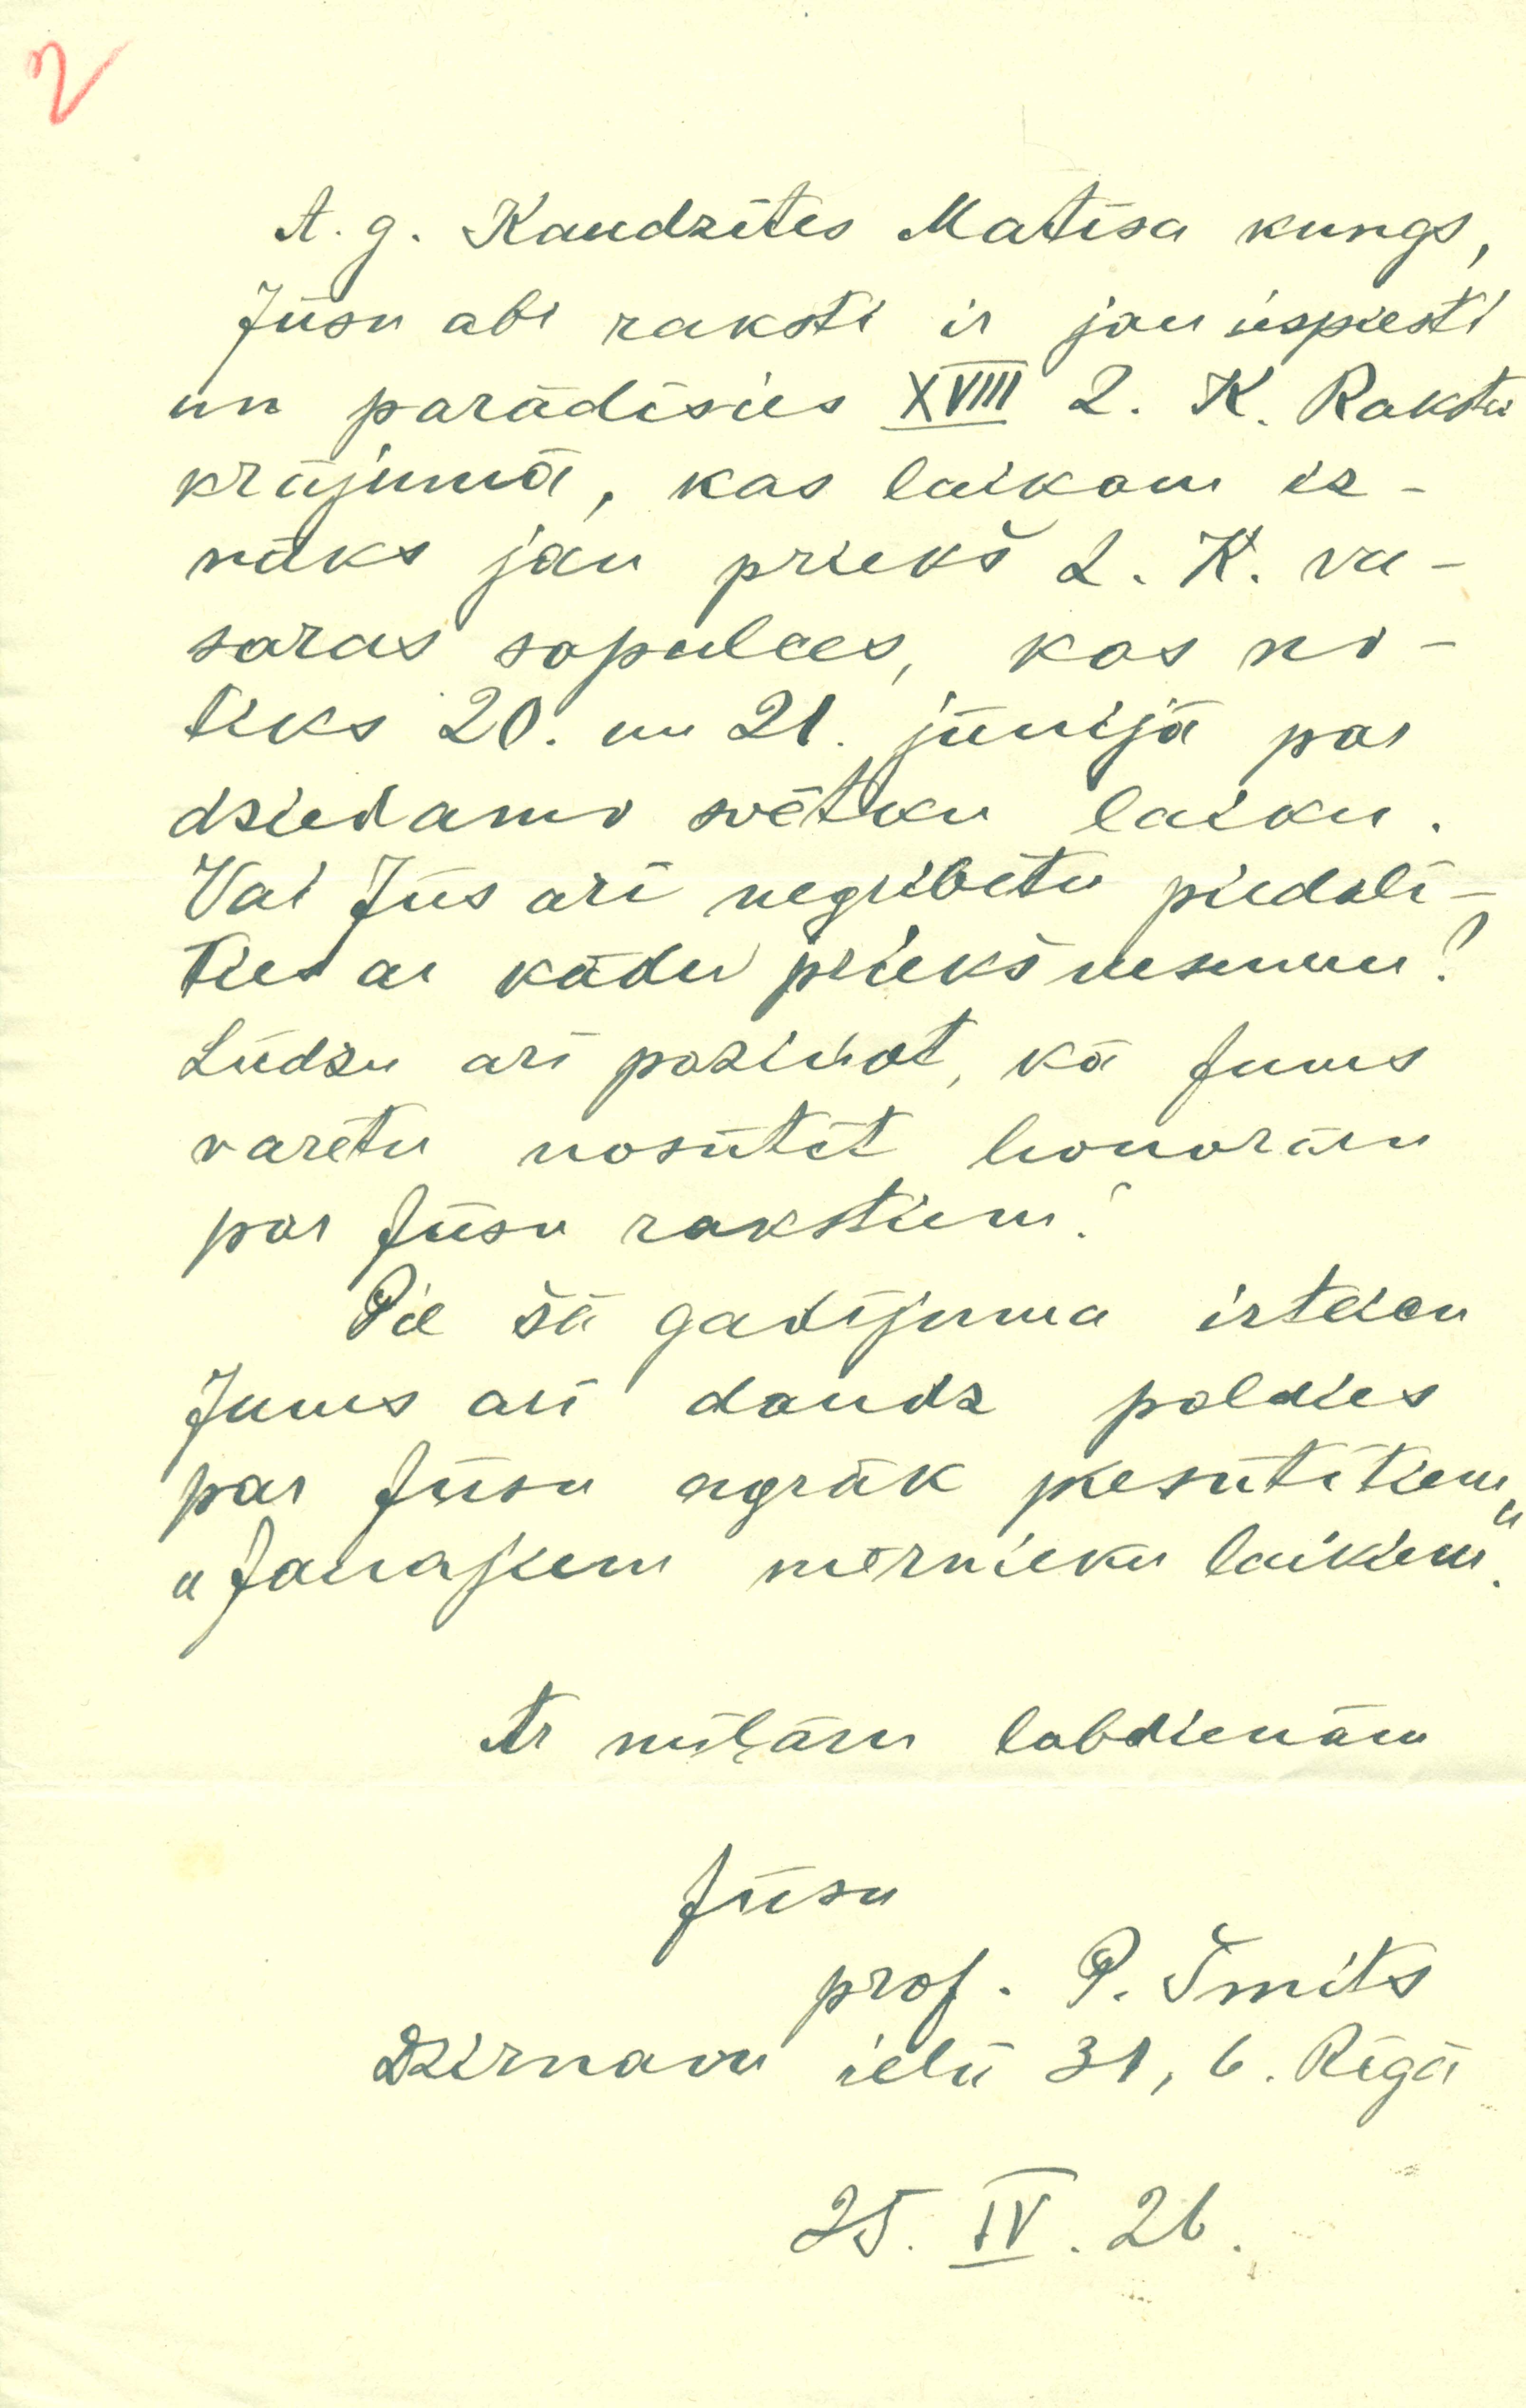 2
A. g. Kaudzītes Matīsa kungs,
Jūsu abi raksti ir jau iespiesti
un parādīsies XVIII R. K. Rakstu
krājumā, kas laikam iz-
nāks jau priekš R. K. va-
saras sapulces, kas no-
tiks 20. un 21. jūnijā par
dziedamo svētku laiku.
Vai Jūs arī negribētu piedalī-
ties ar kādu priekšnesumu?
Lūdzu arī paziņot, kā Jums
varētu nosūtīt honorāru
par Jūsu rakstiem!
Pie šā gadījuma izteicu
Jums arī daudz paldies
par Jūsu agrāk piesūtītiem
„Jaunajiem mērnieku laikiem".
Ar mīļām labdienām
Jūsu
prof. P. Šmits
Dzirnavu ielā 31, 6. Rīgā
25. IV. 26.